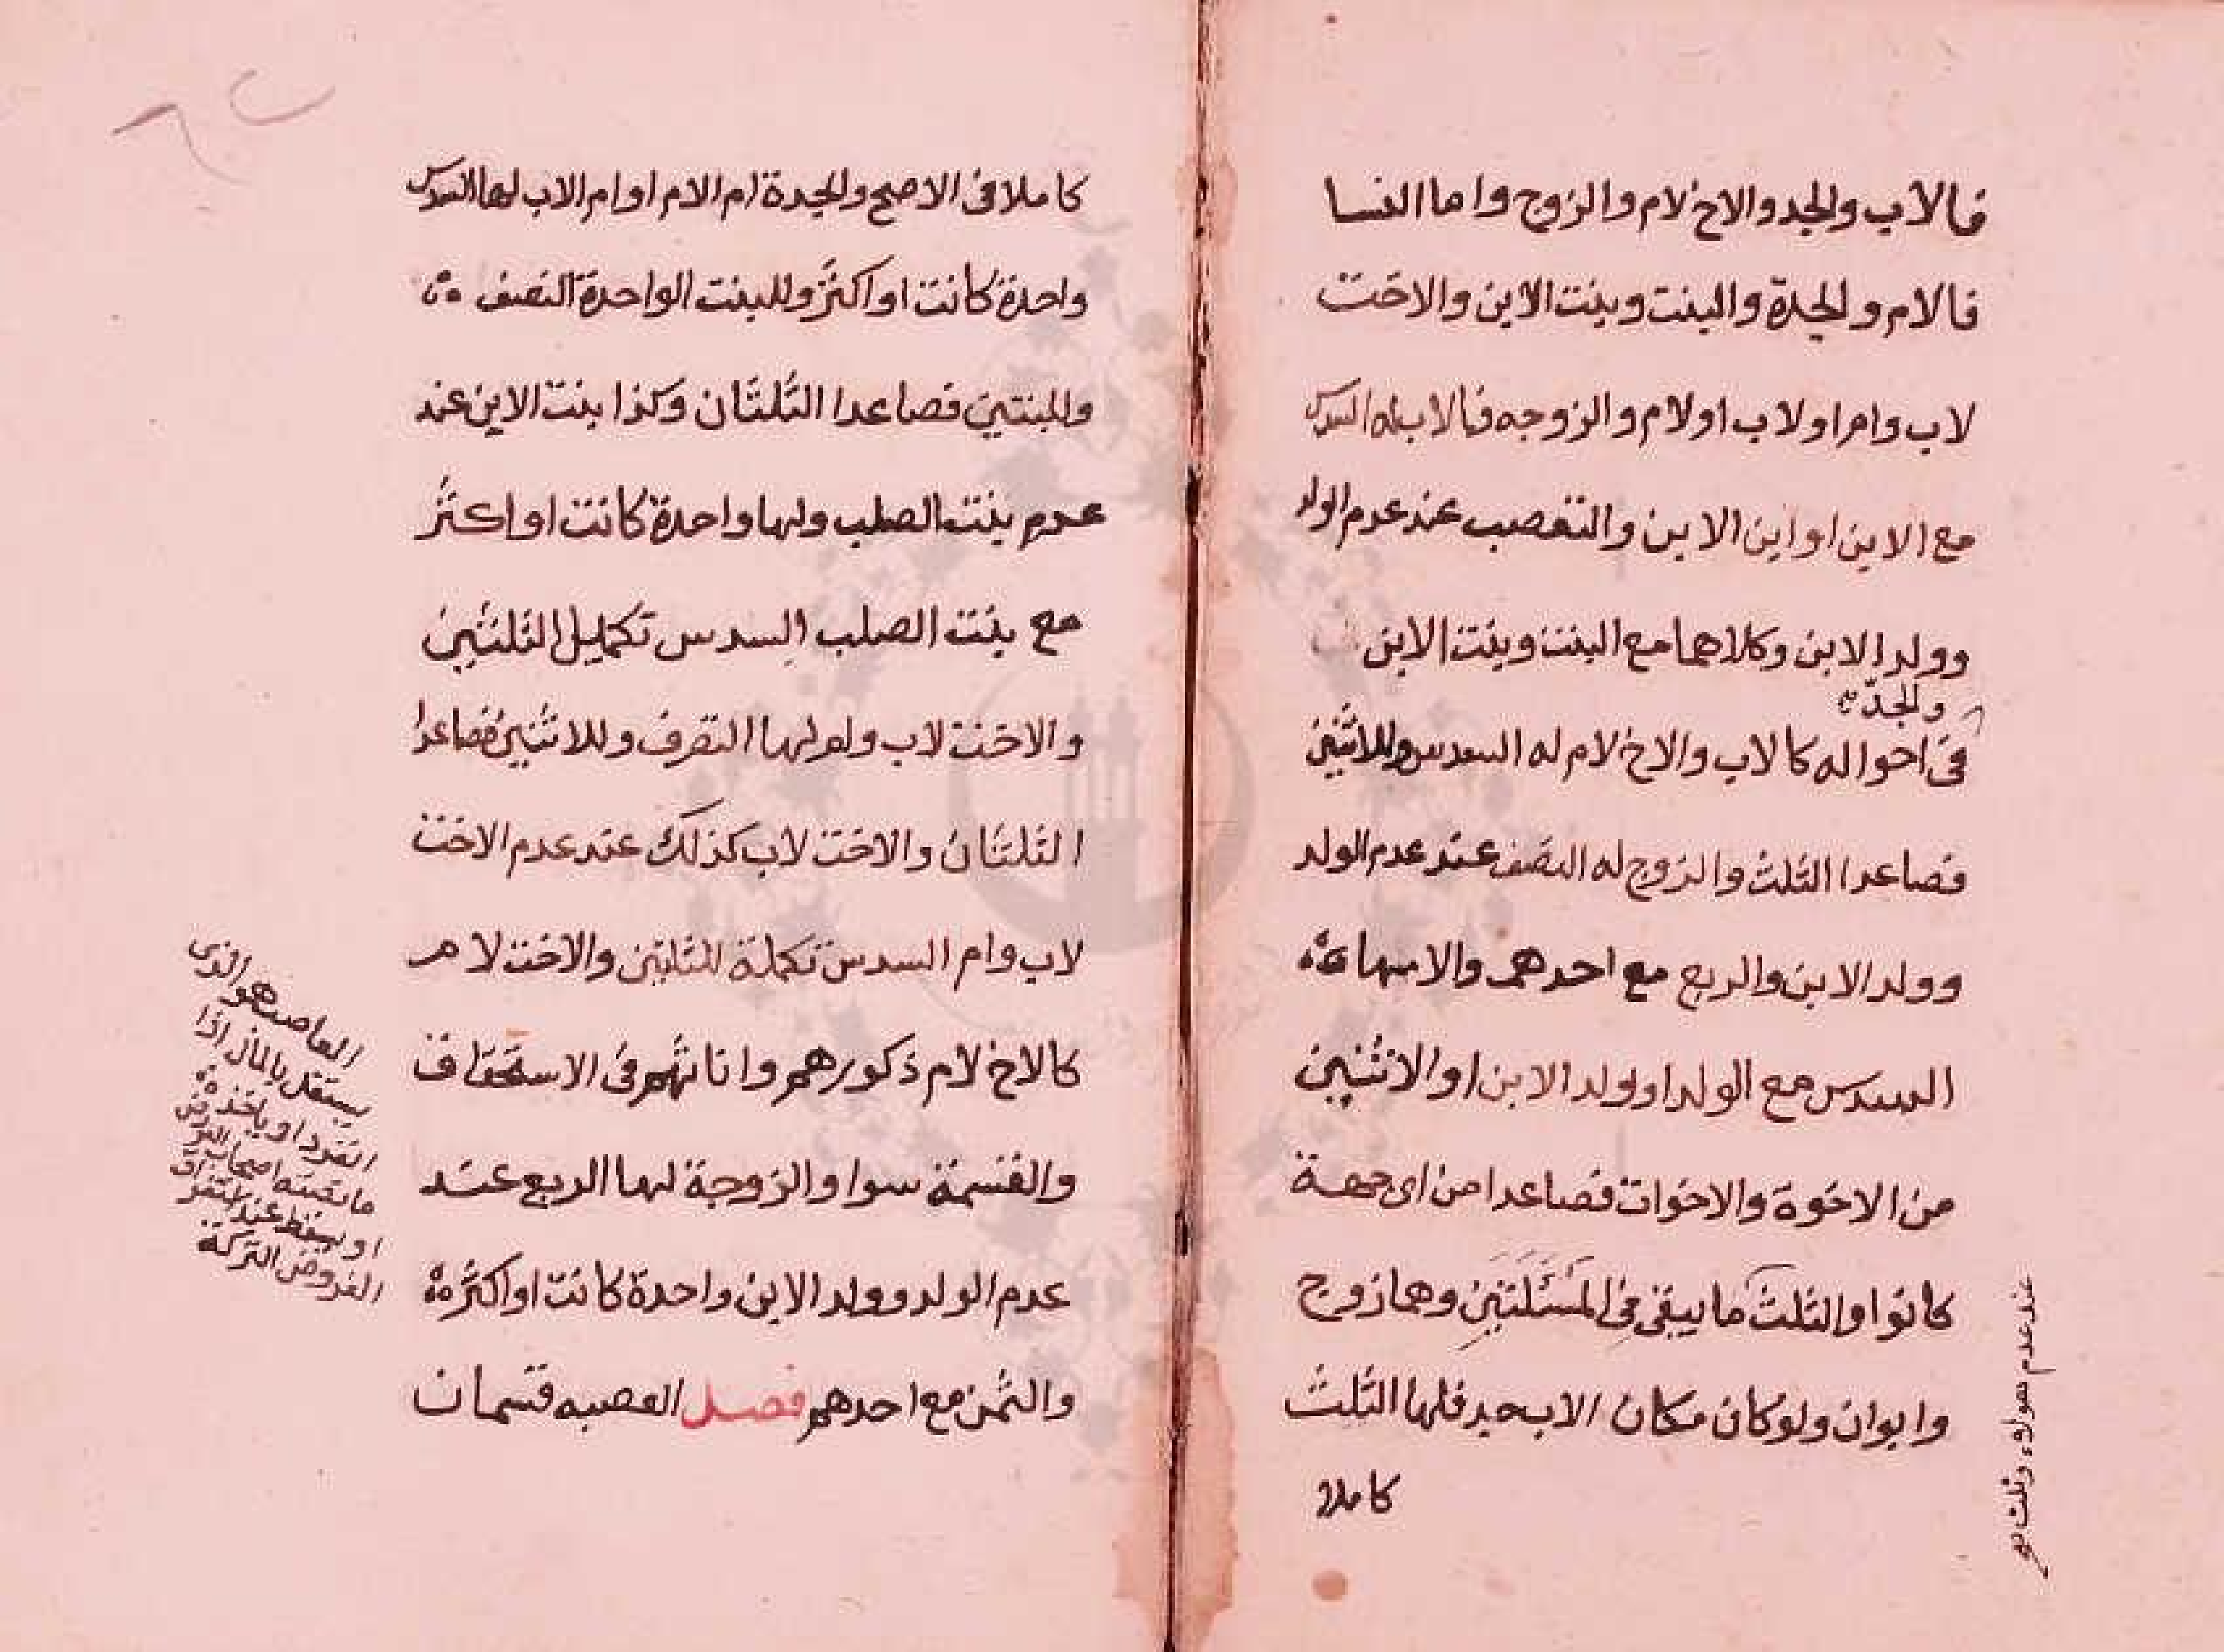 فالاب والجد والاخ لام والزوج واما النسا
فالام والجدة والبنت وبنت الابن والاخت
لاب وام او لاب او لام والزوجه فالاب له السدس
مع الابن او ابن الابن والتعصيب عند عدم الولد
وولد الابن وكلاهما مع البنت وبنت الابن
والجد
فى احواله كالاب والاخ لام له السدس وللاثنين
فصاعدا الثلث والزوج له النصف عند عدم الولد
وولد الابن والربع مع احدهم والام لها
السدس مع الولد او ولد الابن او الاثنين
من الاخوة والاخوات فصاعدا من اى جهة
كانوا والثلث ما يبقى فى المسئلتين وهما زوج
وابوان ولو كان مكان الاب جد فلها الثلث
كاملا
عند عدم هولاء وثلث
كاملا فى الاصح والجدة ام الام او ام الاب لها السدس
واحدة كانت او اكثر وللبنت الواحدة النصف
وللبنتين فصاعدا الثلثان وكذا بنت الابن عند
عدم بنت الصلب ولها واحدة كانت او اكثر
مع بنت الصلب السدس تكميل الثلثين
والاخت لاب وام لها النصف وللاثنين فصاعدا
الثلثان والاخت لاب كذلك عند عدم الاخت
لاب وام السدس تكملة للثلثين والاخت لام
كالاخ لام ذكورهم واناثهم فى الاستحقاق
والقسمة سوا والزوجة لها الربع عند
عدم الولد وولد الابن واحدة كانت او اكثر
والثمن مع احدهم فصل العصبه قسمان
العاصب هو الذى
يستقل بالمال اذا
انفرد او ياخذ
ما بقيته اصحاب الفروض
او يسقط عند استغراق
الفروض التركة